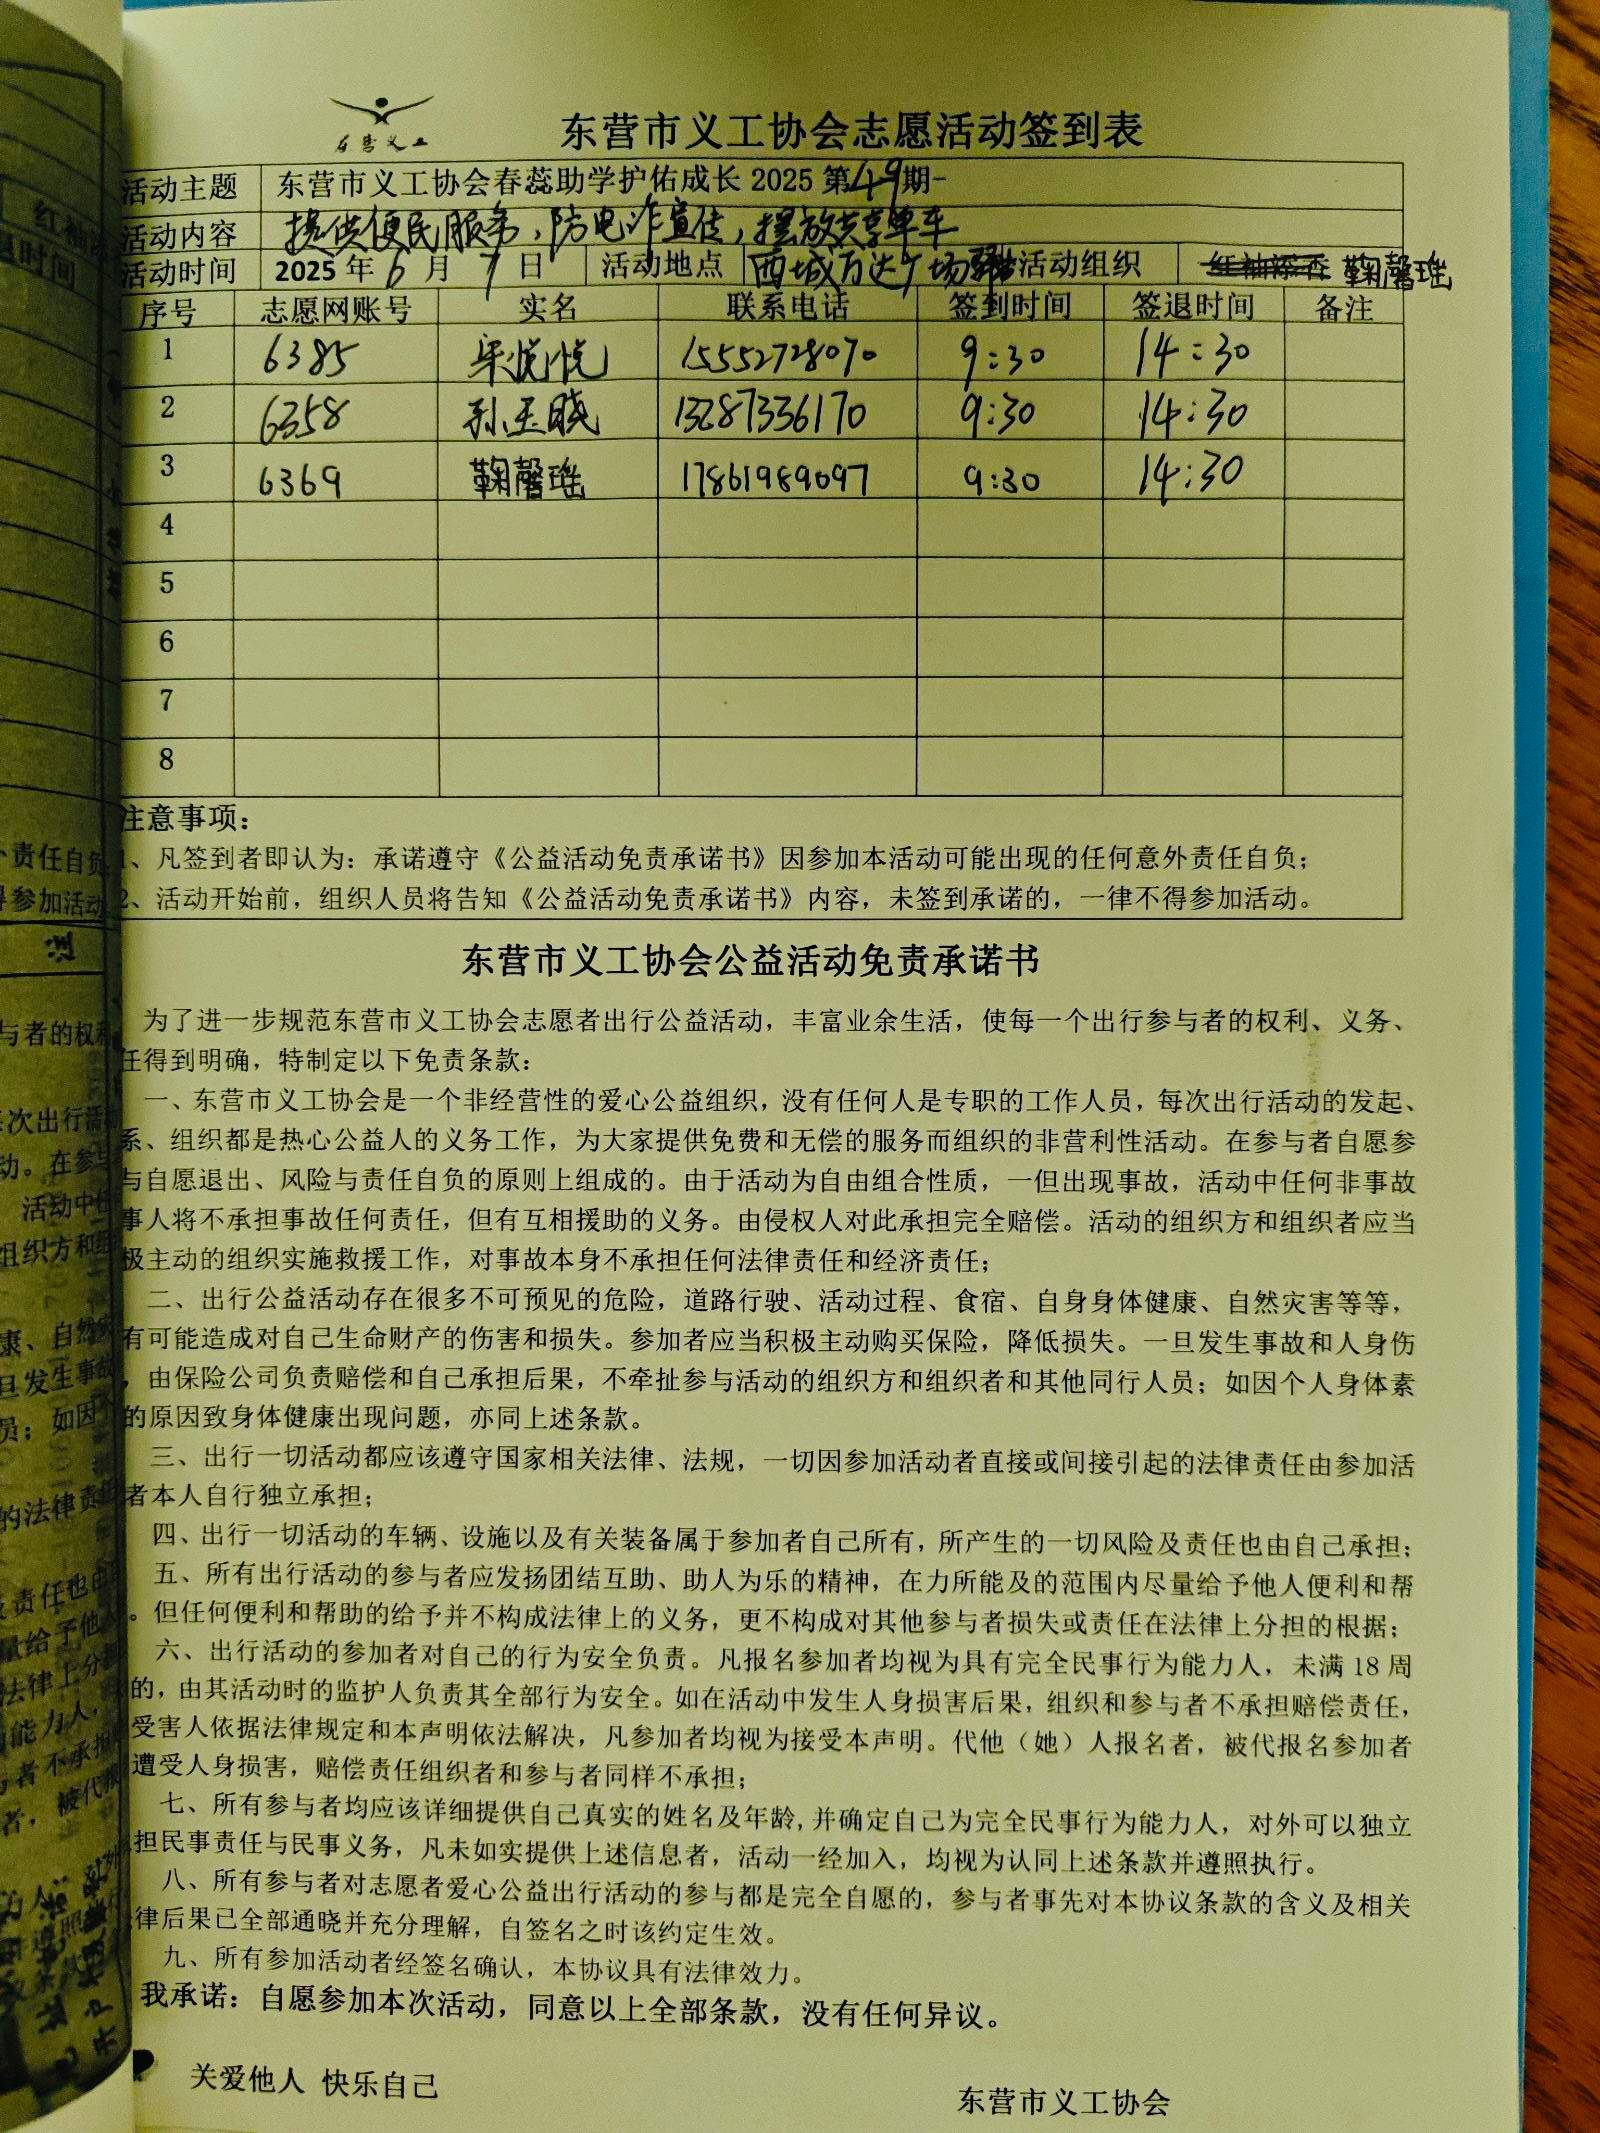 东营义工
东营市义工协会志愿活动签到表
活动主题 东营市义工协会春蕊助学护佑成长 2025 第49期-
活动内容 提供便民服务,防电诈宣传,摆放共享单车
活动时间 2025 年 6 月 7 日 活动地点 西城万达广场驿站 活动组织 红袖添香 鞠馨瑶
序号 志愿网账号 实名 联系电话 签到时间 签退时间 备注
1 6385 宋悦悦 15552728070 9:30 14:30
2 6358 孙玉晓 13287336170 9:30 14:30
3 6369 鞠馨瑶 17861989097 9:30 14:30
4
5
6
7
8
注意事项:
1、凡签到者即认为:承诺遵守《公益活动免责承诺书》因参加本活动可能出现的任何意外责任自负;
2、活动开始前,组织人员将告知《公益活动免责承诺书》内容,未签到承诺的,一律不得参加活动。
东营市义工协会公益活动免责承诺书
为了进一步规范东营市义工协会志愿者出行公益活动,丰富业余生活,使每一个出行参与者的权利、义务、
任得到明确,特制定以下免责条款:
一、东营市义工协会是一个非经营性的爱心公益组织,没有任何人是专职的工作人员,每次出行活动的发起、
系、组织都是热心公益人的义务工作,为大家提供免费和无偿的服务而组织的非营利性活动。在参与者自愿参
与自愿退出、风险与责任自负的原则上组成的。由于活动为自由组合性质,一但出现事故,活动中任何非事故
事人将不承担事故任何责任,但有互相援助的义务。由侵权人对此承担完全赔偿。活动的组织方和组织者应当
极主动的组织实施救援工作,对事故本身不承担任何法律责任和经济责任;
二、出行公益活动存在很多不可预见的危险,道路行驶、活动过程、食宿、自身身体健康、自然灾害等等,
有可能造成对自己生命财产的伤害和损失。参加者应当积极主动购买保险,降低损失。一旦发生事故和人身伤
,由保险公司负责赔偿和自己承担后果,不牵扯参与活动的组织方和组织者和其他同行人员;如因个人身体素
的原因致身体健康出现问题,亦同上述条款。
三、出行一切活动都应该遵守国家相关法律、法规,一切因参加活动者直接或间接引起的法律责任由参加活
者本人自行独立承担;
四、出行一切活动的车辆、设施以及有关装备属于参加者自己所有,所产生的一切风险及责任也由自己承担;
五、所有出行活动的参与者应发扬团结互助、助人为乐的精神,在力所能及的范围内尽量给予他人便利和帮
。但任何便利和帮助的给予并不构成法律上的义务,更不构成对其他参与者损失或责任在法律上分担的根据;
六、出行活动的参加者对自己的行为安全负责。凡报名参加者均视为具有完全民事行为能力人,未满 18 周
的,由其活动时的监护人负责其全部行为安全。如在活动中发生人身损害后果,组织和参与者不承担赔偿责任,
受害人依据法律规定和本声明依法解决,凡参加者均视为接受本声明。代他(她)人报名者,被代报名参加者
遭受人身损害,赔偿责任组织者和参与者同样不承担;
七、所有参与者均应该详细提供自己真实的姓名及年龄,并确定自己为完全民事行为能力人,对外可以独立
担民事责任与民事义务,凡未如实提供上述信息者,活动一经加入,均视为认同上述条款并遵照执行。
八、所有参与者对志愿者爱心公益出行活动的参与都是完全自愿的,参与者事先对本协议条款的含义及相关
律后果已全部通晓并充分理解,自签名之时该约定生效。
九、所有参加活动者经签名确认,本协议具有法律效力。
我承诺:自愿参加本次活动,同意以上全部条款,没有任何异议。
关爱他人 快乐自己
东营市义工协会